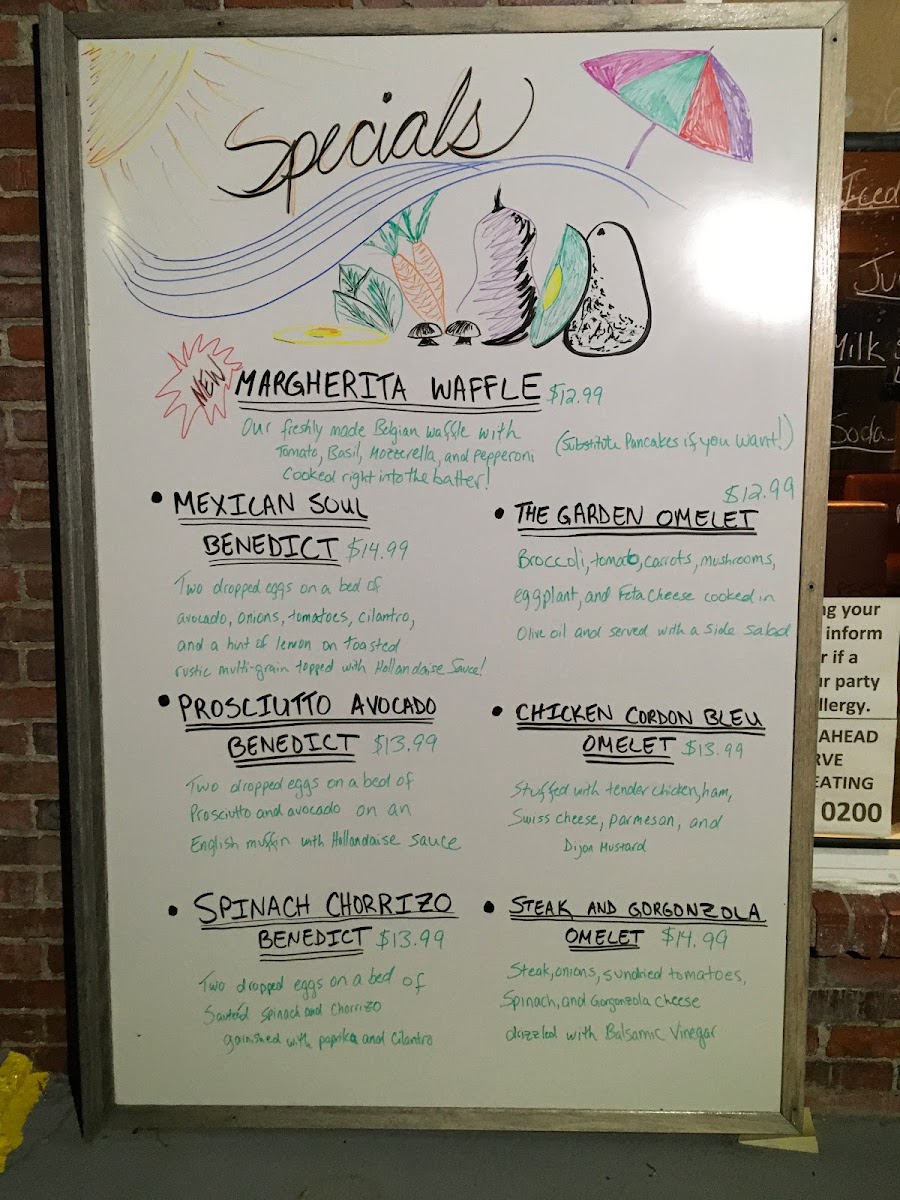 Specials
NEW
MARGHERITA WAFFLE $12.99
Our freshly made Belgian waffle with
Tomato, Basil, Mozzerella, and pepperoni
Cooked right into the batter!
(Substitute Pancakes if you want!)
• MEXICAN SOUL
BENEDICT $14.99
Two dropped eggs on a bed of
avocado, onions, tomatoes, cilantro,
and a hint of lemon on toasted
rustic multi-grain topped with Hollandaise Sauce!
• PROSCIUTTO AVOCADO
BENEDICT $13.99
Two dropped eggs on a bed of
Prosciutto and avocado on an
English muffin with Hollandaise sauce
• SPINACH CHORRIZO
BENEDICT $13.99
Two dropped eggs on a bed of
Sautéd Spinach and Chorrizo
garnished with paprika and Cilantro
$12.99
• THE GARDEN OMELET
Broccoli, tomato, carrots, mushrooms,
eggplant, and Feta Cheese cooked in
Olive oil and served with a side salad
• CHICKEN CORDON BLEU
OMELET $13.99
Stuffed with tender chicken, ham,
Swiss cheese, parmesan, and
Dijon Mustard
• STEAK AND GORGONZOLA
OMELET $14.99
Steak, onions, sundried tomatoes,
Spinach, and Gorgonzola cheese
dazzled with Balsamic Vinegar
Iced
Ju
Milk
Soda
ng your
inform
r if a
ur party
llergy.
AHEAD
RVE
EATING
0200